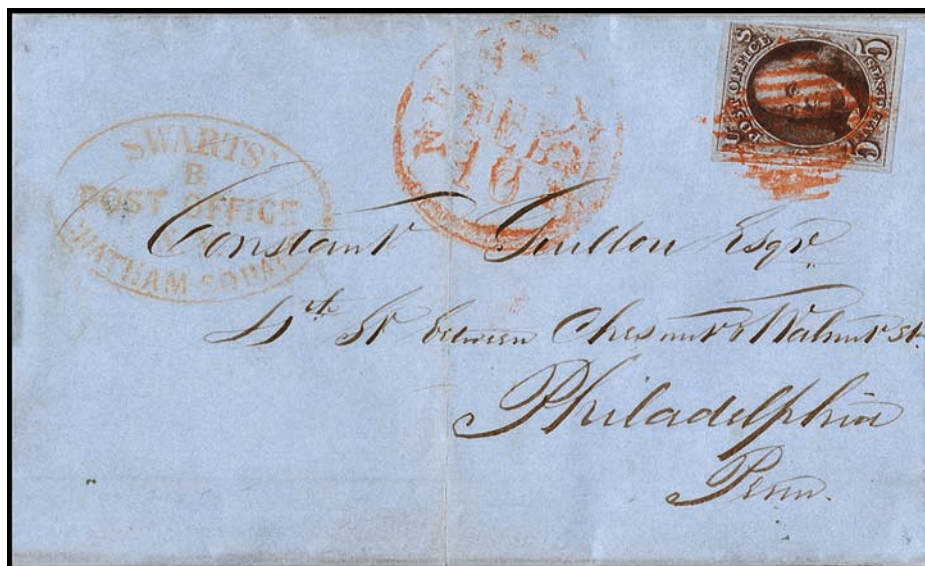 SWARTS'
B
POST OFFICE
CHATHAM SQUARE
FEB
10
U.S. POST OFFICE
5 5
Constant Guillou Esqr
4th St between Chesnut & Walnut St.
Philadelphia
Penn.